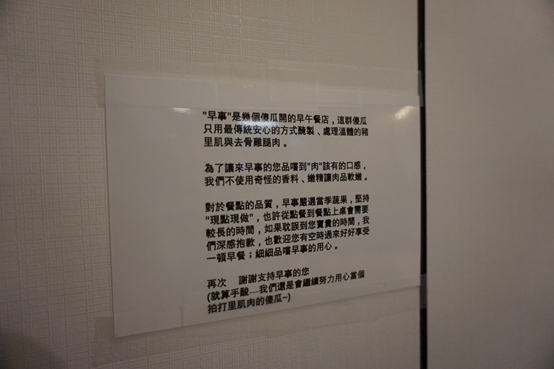 "早事"是幾個傻瓜開的早午餐店，這群傻瓜
只用最傳統安心的方式醃製、處理溫體的豬
里肌與去骨雞腿肉。
為了讓來早事的您品嚐到"肉"該有的口感，
我們不使用奇怪的香料、嫩精讓肉品軟嫩。
對於餐點的品質，早事嚴選當季蔬果，堅持
"現點現做"，也許從點餐到餐點上桌會需要
較長的時間，如果耽誤到您寶貴的時間，我
們深感抱歉，也歡迎您有空時過來好好享受
一頓早餐；細細品嚐早事的用心。
再次　謝謝支持早事的您
(就算手酸....我們還是會繼續努力用心當個
拍打里肌肉的傻瓜~)